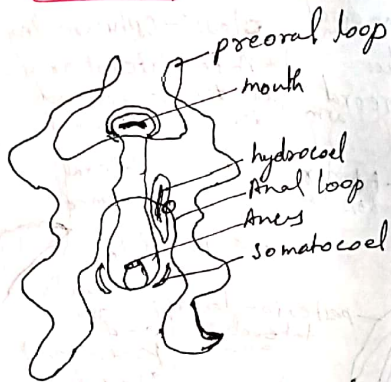 preoral loop
mouth
hydrocoel
Anal loop
Anus
Somatocoel